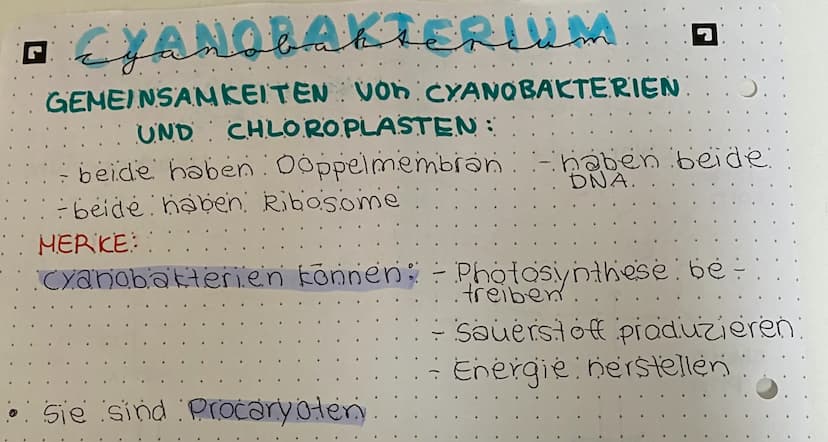 CYANOBAKTERIUM
cyanobakterium
GEMEINSAMKEITEN VON CYANOBAKTERIEN
UND CHLOROPLASTEN:
- beide haben Doppelmembran - haben beide
DNA
- beide haben Ribosome
MERKE:
Cyanobakterien können: - Photosynthese be-
treiben
- Sauerstoff produzieren
- Energie herstellen
• Sie sind Procaryoten